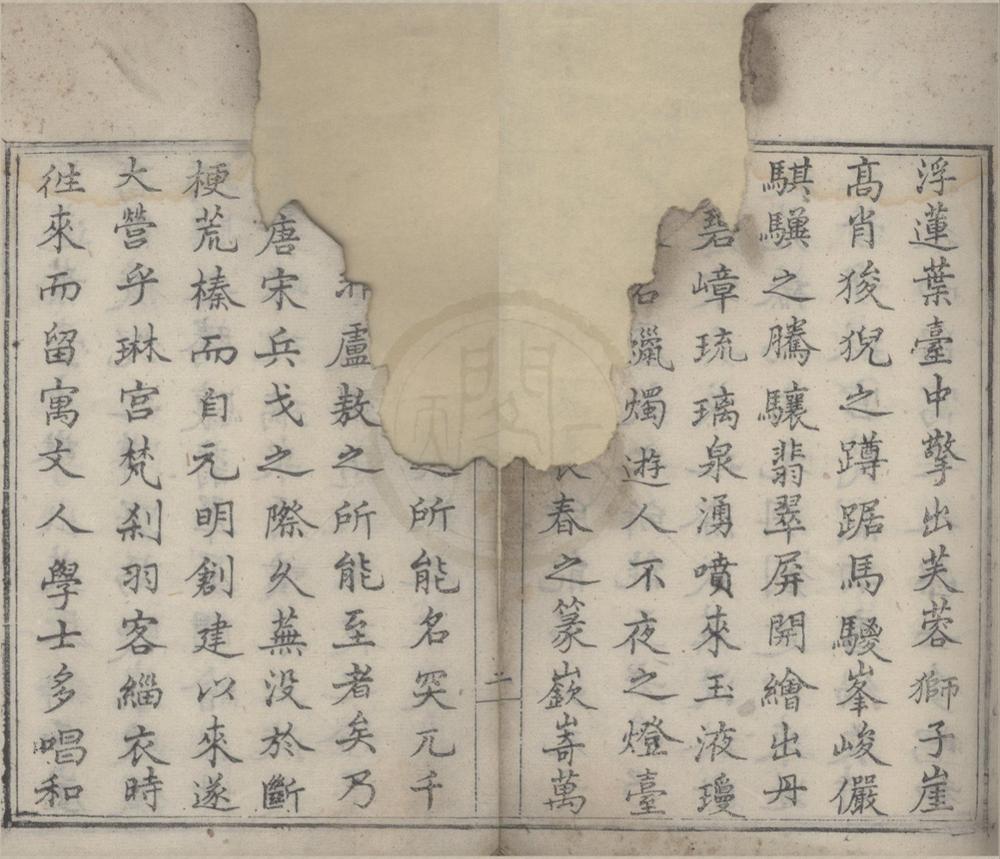 浮蓮葉臺中擎出芙蓉獅子崖
高肖狻猊之蹲踞馬騣峯峻儼
騏驥之騰驤翡翠屏開繪出丹
碧嶂琉璃泉湧噴來玉液瓊
蠟燭遊人不夜之燈臺
春之篆嶔崎萬
所能名突兀千
盧敖之所能至者矣乃
唐宋兵戈之際久蕪没於斷
梗荒榛而自元明創建以來遂
大營乎琳宫梵刹羽客緇衣時
徃來而留寓文人學士多唱和
二